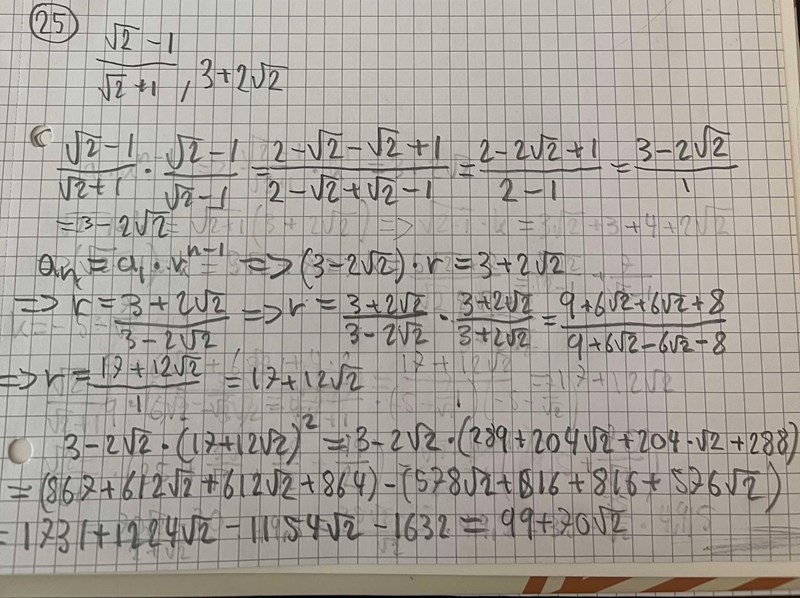 25
(√2 -1)/(√2 +1) , 3+2√2
(√2 -1)/(√2+1) · (√2 -1)/(√2 -1) = (2-√2-√2+1)/(2-√2+√2-1) = (2-2√2+1)/(2-1) = (3-2√2)/1
= 3-2√2
aₙ = a₁ · rⁿ⁻¹ => (3-2√2) · r = 3+2√2
=> r = (3+2√2)/(3-2√2) => r = (3+2√2)/(3-2√2) · (3+2√2)/(3+2√2) = (9+6√2+6√2+8)/(9+6√2-6√2-8)
=> r = (17+12√2)/1 = 17+12√2
3-2√2 · (17+12√2)² = 3-2√2 · (289+204√2+204·√2+288)
= (867+612√2+612√2+864) - (578√2+816+816+576√2)
= 1731+1224√2-1154√2-1632 = 99+70√2